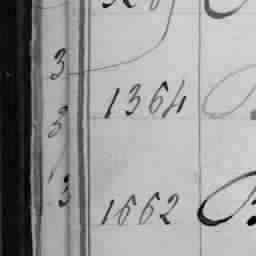 3
1364
3
3
1662